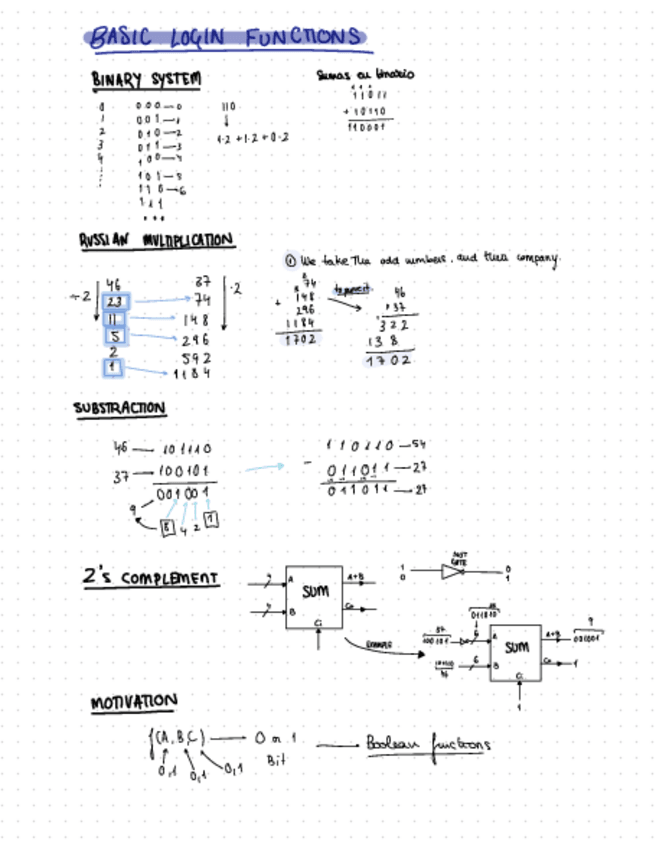 BASIC LOGIN FUNCTIONS
BINARY SYSTEM
0 000 — 0
1 001 — 1
2 010 — 2
3 011 — 3
4 100 — 4
101 — 5
110 — 6
111
...
110
↓
1·2 + 1·2 + 0·2
Sumas en binario
11011
+ 10110
110001
RUSSIAN MULTIPLICATION
÷2
46 37
23 74
11 148
5 296
2 592
1 1184
·2
① We take the odd numbers, and their company.
74
148
+ 296
1184
1702
46
37
322
138
1702
SUBSTRACTION
46 — 101110
37 — 100101
001001
9
8 4 2 1
110110 — 54
- 011011 — 27
011011 — 27
2's COMPLEMENT
A
B
SUM
A+B
Co
Ci
NOT GATE
1 0
0 1
EXAMPLE
37
100101
011010
6
101110
46
6
A
B
SUM
A+B
Co
Ci
1
1
9
001001
MOTIVATION
f(A,B,C) — 0 or 1
Bit
0,1 0,1 0,1
Boolean functions